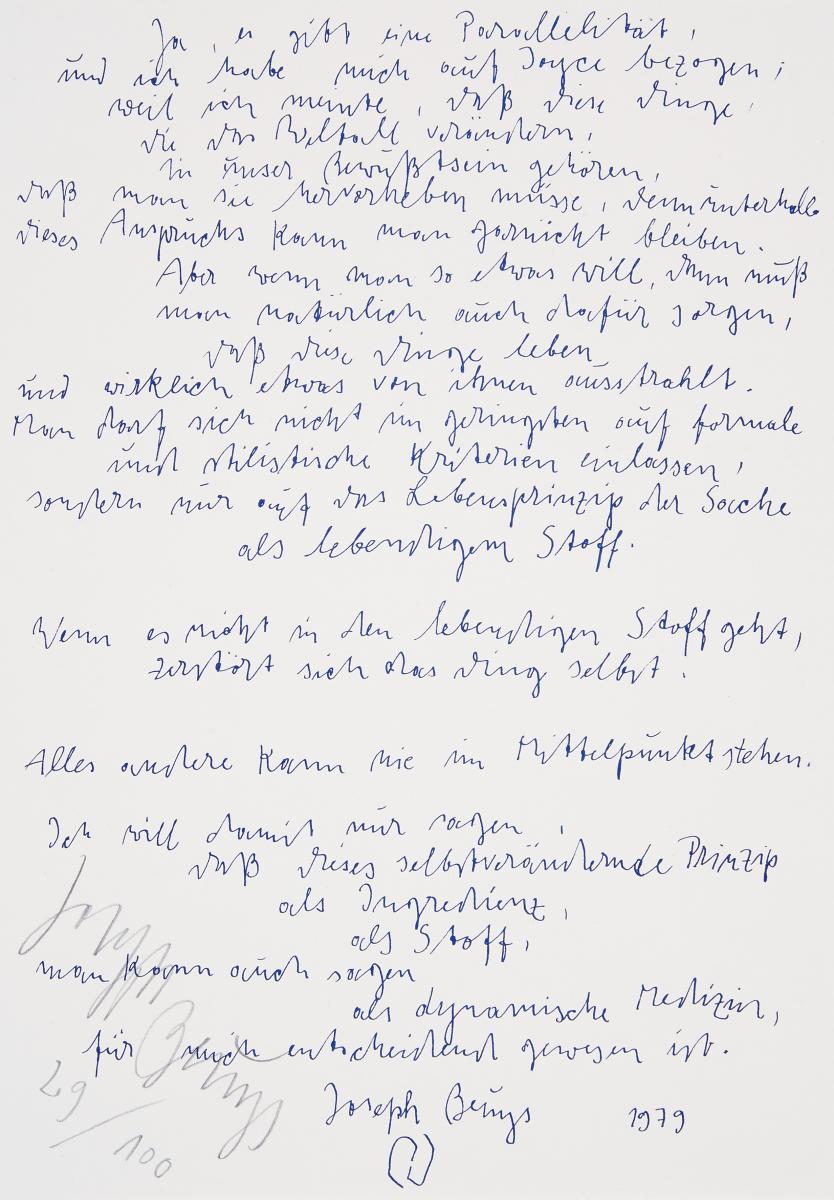 Ja, es gibt eine Parallelität,
und ich habe mich auf Joyce bezogen,
weil ich meinte, daß diese Dinge,
die das Weltall verändern,
in unser Bewußtsein gehören,
daß man sie hervorheben müsse, denn unterhalb
dieses Anspruchs kann man garnicht bleiben.
Aber wenn man so etwas will, dann muß
man natürlich auch dafür sorgen,
daß diese Dinge leben
und wirklich etwas von ihnen ausstrahlt.
Man darf sich nicht im geringsten auf formale
und stilistische Kriterien einlassen,
sondern nur auf das Lebensprinzip der Sache
als lebendigem Stoff.
Wenn es nicht in den lebendigen Stoff geht,
zerstört sich das Ding selbst.
Alles andere kann nie im Mittelpunkt stehen.
Ich will damit nur sagen,
daß dieses selbstverändernde Prinzip
als Ingredienz,
als Stoff,
man kann auch sagen
als dynamische Medizin,
für mich entscheidend gewesen ist.
Joseph Beuys 1979
Joseph
Beuys
29/100